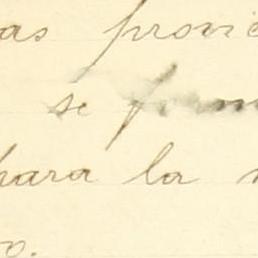 as provi
se form
para la
o.